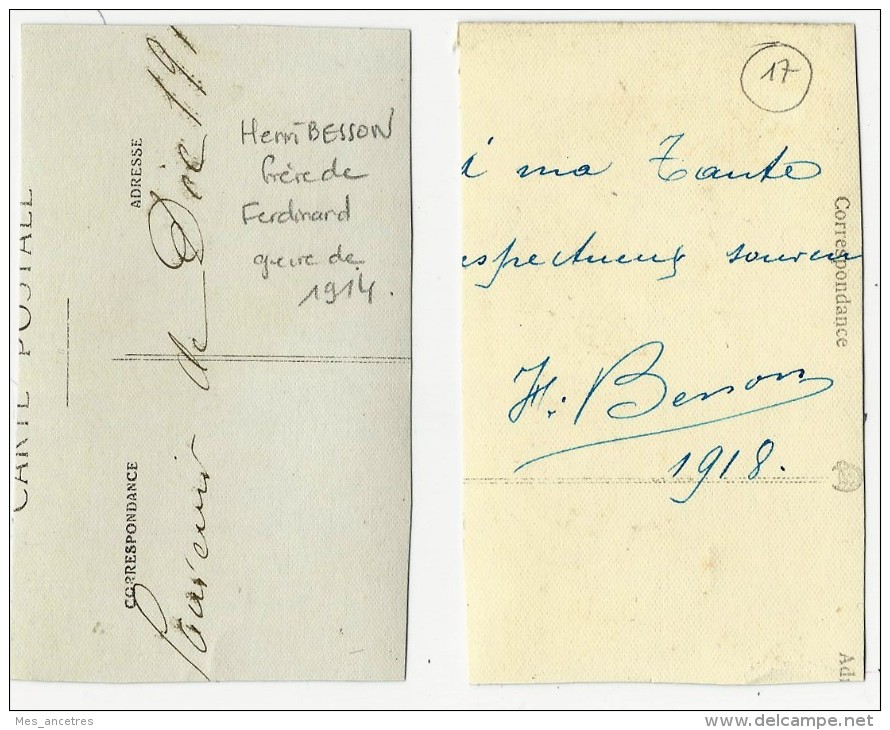 CARTE POSTALE
ADRESSE
CORRESPONDANCE
Souvenir de Die 191
Henri BESSON
frère de
Ferdinard
guerre de
1914.
17
à ma Tante
espectueux souven
H. Besson
1918.
Correspondance
Adr
Mes_ancetres
delcampe.net